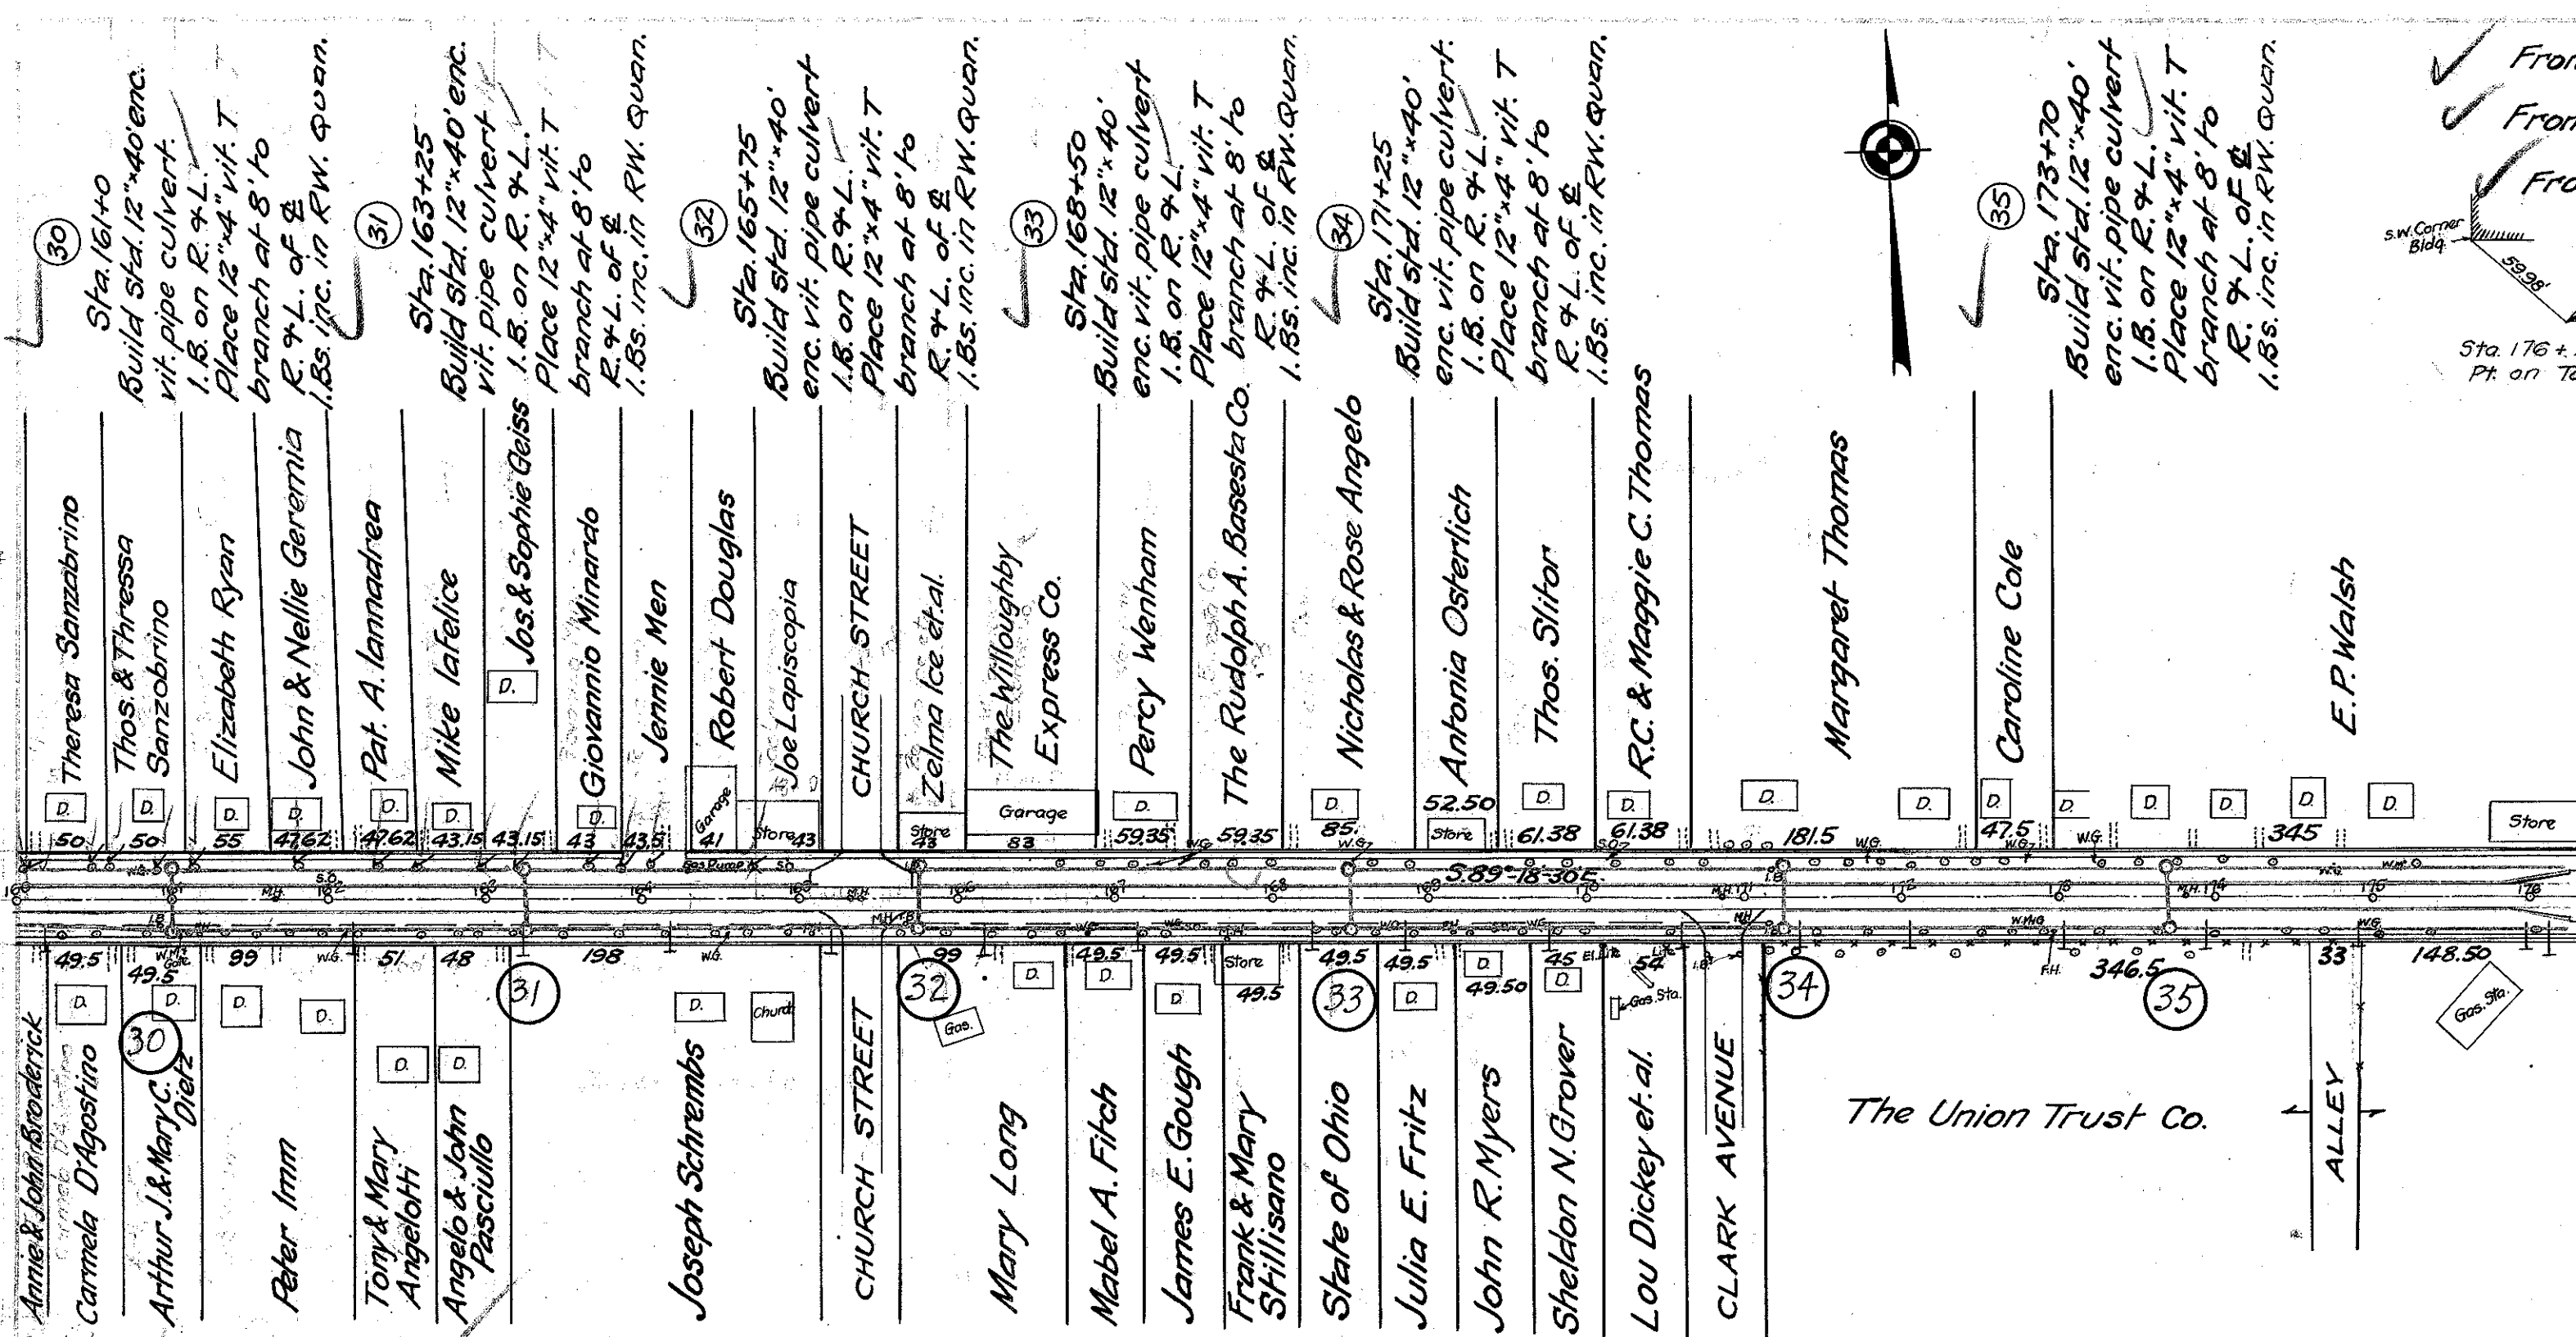 30
Sta. 161+0
Build std. 12"x40' enc.
vit. pipe culvert.
I.B. on R. & L.
Place 12"x4" vit. T
branch at 8' to
R. & L. of ℄
I.Bs. inc. in RW. Quan.
31
Sta. 163+25
Build std. 12"x40' enc.
vit. pipe culvert
I.B. on R. & L.
Place 12"x4" vit. T
branch at 8' to
R. & L. of ℄
I.Bs. inc. in RW. Quan.
32
Sta. 165+75
Build std. 12"x40'
enc. vit. pipe culvert
I.B. on R. & L.
Place 12"x4" vit. T
branch at 8' to
R. & L. of ℄
I.Bs. inc. in RW. Quan.
33
Sta. 168+50
Build std. 12"x40'
enc. vit. pipe culvert
I.B. on R. & L.
Place 12"x4" vit. T
branch at 8' to
R. & L. of ℄
I.Bs. inc. in RW. Quan.
34
Sta. 171+25
Build std. 12"x40'
enc. vit. pipe culvert.
I.B. on R. & L.
Place 12"x4" vit. T
branch at 8' to
R. & L. of ℄
I.Bs. inc. in RW. Quan.
35
Sta. 173+70
Build std. 12"x40'
enc. vit. pipe culvert
I.B. on R. & L.
Place 12"x4" vit. T
branch at 8' to
R. & L. of ℄
I.Bs. inc. in RW. Quan.
S.W. Corner
Bldg.
59.98'
Sta. 176+
Pt. on
Theresa Sanzabrino
Thos. & Thressa
Sanzobrino
Elizabeth Ryan
John & Nellie Geremia
Pat. A. Iannadrea
Mike Iafelice
Jos. & Sophie Geiss
Giovannio Minardo
Jennie Men
Robert Douglas
Joe Lapiscopia
CHURCH STREET
Zelma Ice et.al.
The Willoughby
Express Co.
Percy Wenham
The Rudolph A. Basesta Co.
Nicholas & Rose Angelo
Antonia Osterlich
Thos. Slitor
R.C. & Maggie C. Thomas
Margaret Thomas
Caroline Cole
E.P. Walsh
D. D. D. D. D. D. D. D. Garage Store Store Garage D. D. Store D. D. D. D. D. D. D. D. D. D. Store
50 50 55 47.62 47.62 43.15 43.15 43 43.5 41 43 43 83 59.35 59.35 85. 52.50 61.38 61.38 181.5 47.5 345
Gas Pump S.O.
W.G. W.G. W.G. W.G. W.G.
S.89°-18'-30"E.
160 161 162 163 164 165 166 167 168 169 170 171 172 173 174 175 176
49.5 49.5 99 51 48 198 99 49.5 49.5 49.5 49.5 49.5 49.50 45 54 346.5 33 148.50
W.G. W.G. F.H. W.G.
D. D. D. D. D. D. D. Church Gas. D. D. D. Store D. D. D. Gas. Sta. Gas. Sta.
30 31 32 33 34 35
Annie & John Broderick
Carmela D'Agostino
Arthur J. & Mary C.
Dietz
Peter Imm
Tony & Mary
Angelotti
Angelo & John
Pasciullo
Joseph Schrembs
CHURCH STREET
Mary Long
Mabel A. Fitch
James E. Gough
Frank & Mary
Stillisano
State of Ohio
Julia E. Fritz
John R. Myers
Sheldon N. Grover
Lou Dickey et. al.
CLARK AVENUE
The Union Trust Co.
ALLEY